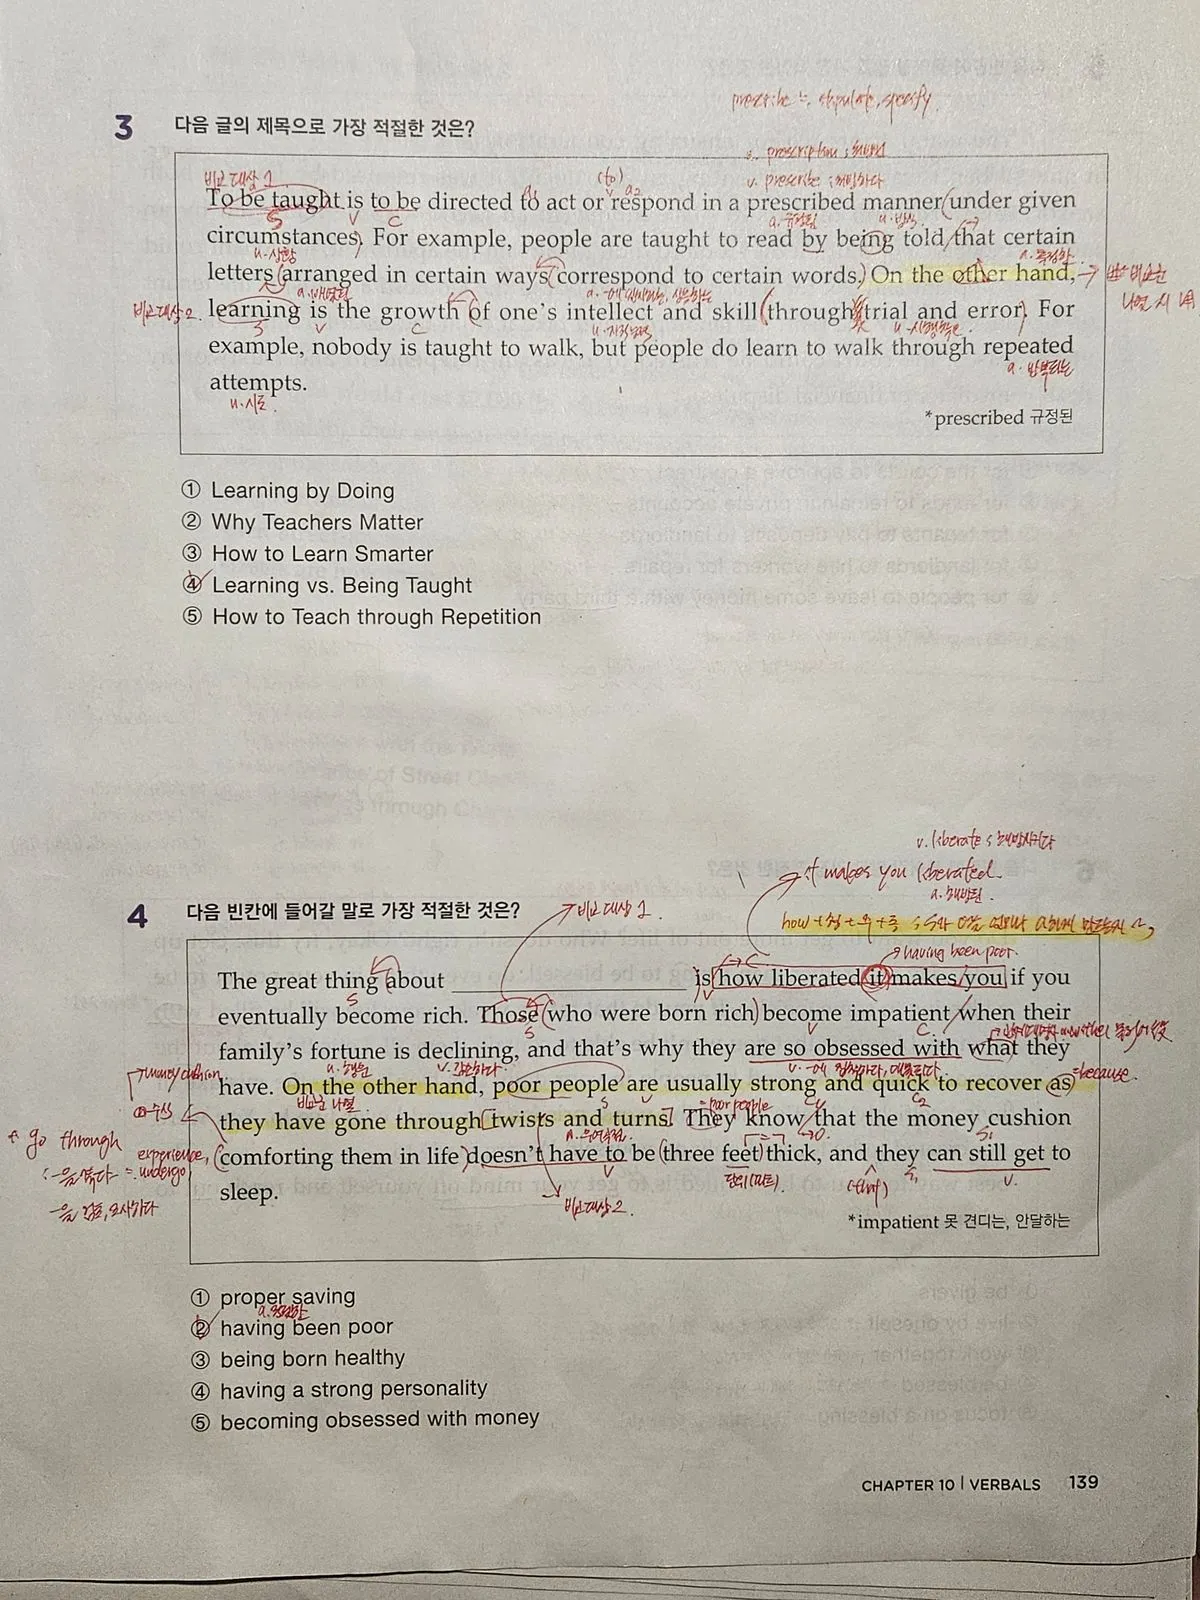 prescribe ≒ stipulate, specify.
3 다음 글의 제목으로 가장 적절한 것은?
n. prescription ; 처방전
비교대상 1 (to) v. prescribe ; 처방하다
To be taught is to be directed to act or respond in a prescribed manner (under given
S V C a. 규정된 n. 방식
circumstances). For example, people are taught to read by being told that certain
n. 상황 a. 특정한
letters (arranged in certain ways) (correspond to certain words.) On the other hand,
a. 배열된
비교대상 2. learning is the growth of one's intellect and skill (through trial and error). For
S V C n. 시행착오
example, nobody is taught to walk, but people do learn to walk through repeated
a. 반복되는
attempts.
n. 시도
*prescribed 규정된
① Learning by Doing
② Why Teachers Matter
③ How to Learn Smarter
④ Learning vs. Being Taught
⑤ How to Teach through Repetition
v. liberate ; 해방시키다
it makes you liberated.
a. 해방된
4 다음 빈칸에 들어갈 말로 가장 적절한 것은?
비교대상 1.
having been poor.
The great thing about ____________________ is how liberated it makes you if you
S V C
eventually become rich. Those (who were born rich) become impatient when their
S V C
family's fortune is declining, and that's why they are so obsessed with what they
v. 감소하다
have. On the other hand, poor people are usually strong and quick to recover as = because.
money cushion S V C2
they have gone through [twists and turns]. They know that the money cushion
poor people
* go through
experience, undergo
(comforting them in life) doesn't have to be (three feet) thick, and they can still get to
V 단위(피트) V
sleep.
비교대상 2.
*impatient 못 견디는, 안달하는
① proper saving
a. 적절한
② having been poor
③ being born healthy
④ having a strong personality
⑤ becoming obsessed with money
CHAPTER 10 | VERBALS 139